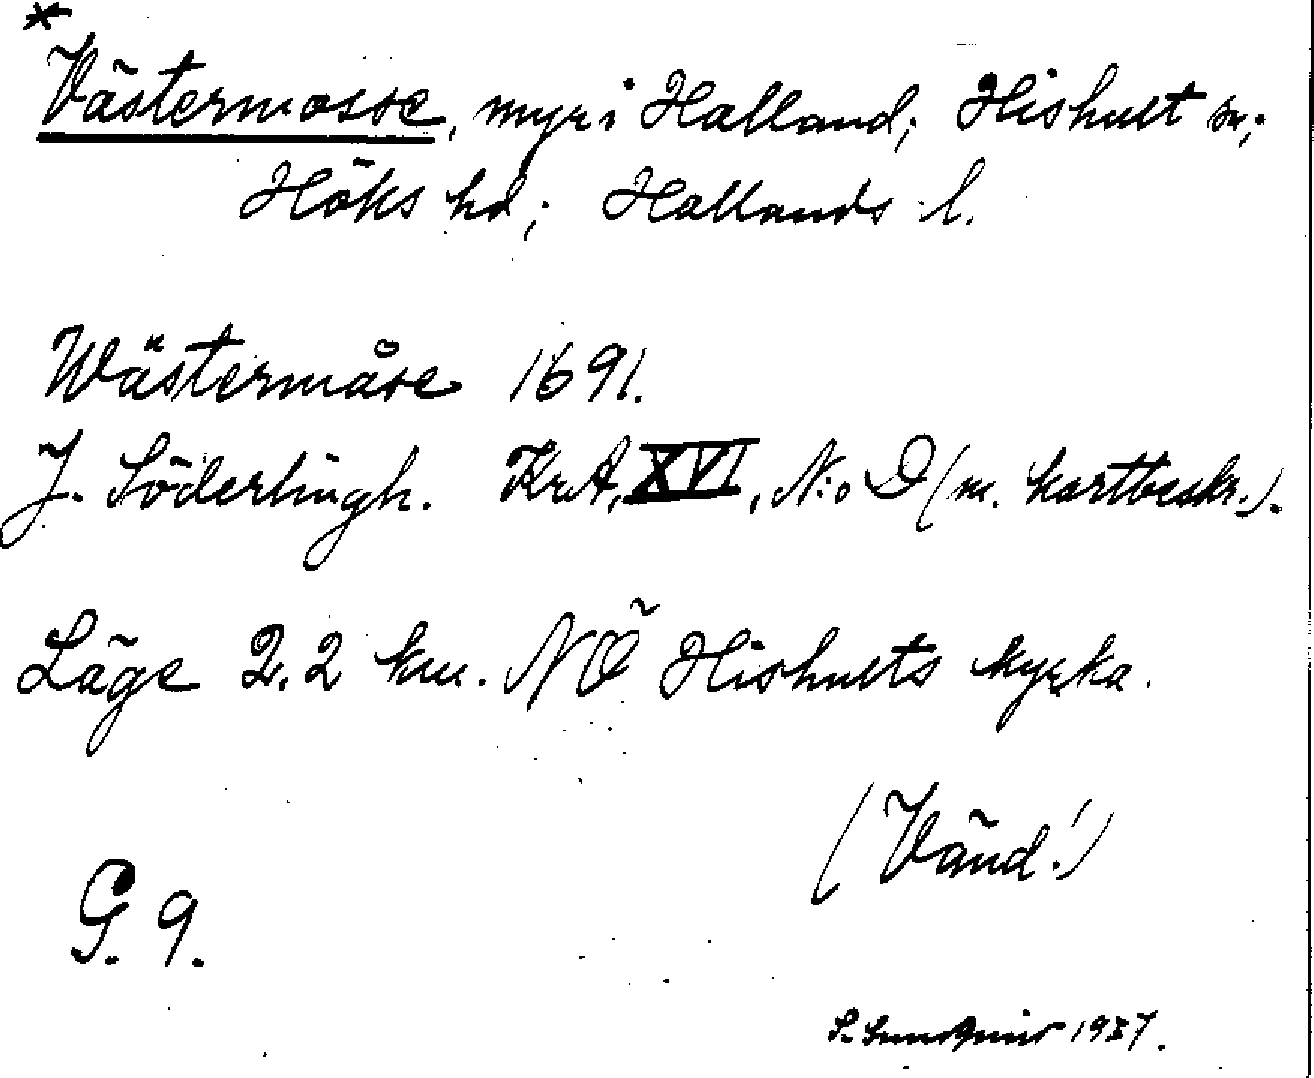 *
Västermosse, myr i Halland; Hishult sn;
Höks hd; Hallands l.
Wästermåse 1691.
J. Söderlingh. KrA, XVI, N:o D (m. kartbeskr.).
Läge 2,2 km. NÖ Hishults kyrka.
(Vänd!)
G. 9.
S. Sundquist 1937.